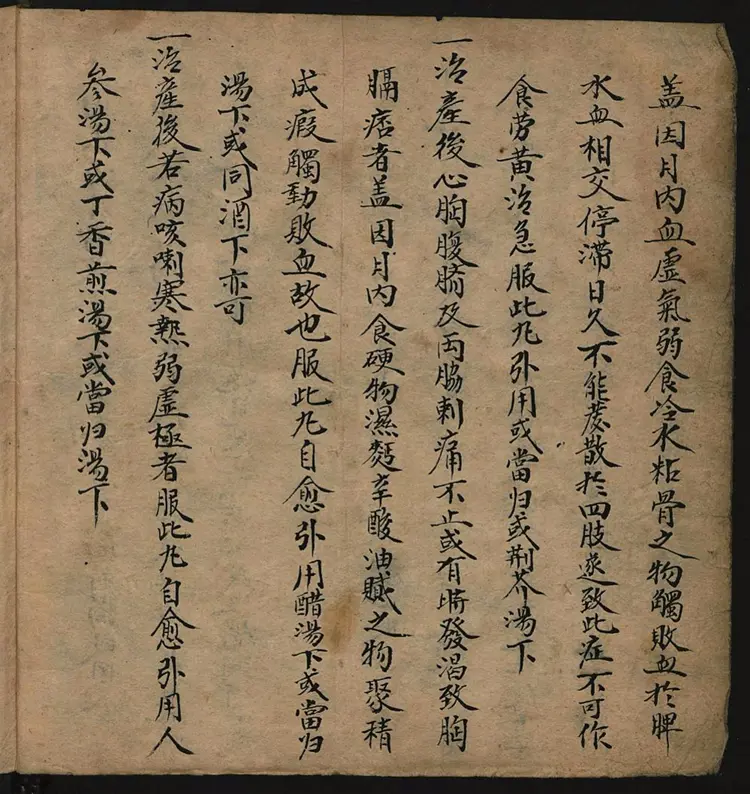 盖因月内血虚氣弱食冷水粘骨之物觸敗血扵脾
水血相交停滯日久不能發散扵四肢遂致此症不可作
食劳黄治急服此丸引用或當归或荆芥湯下
一治產後心胸腹臍及両脇刺痛不止或有時發渴致胸
膈痞者盖因月内食硬物濕麪辛酸油膩之物聚積
成瘕觸動敗血故也服此丸自愈引用醋湯下或當归
湯下或同酒下亦可
一治產後若病咳喇寒熱弱虚極者服此丸自愈引用人
參湯下或丁香煎湯下或當归湯下